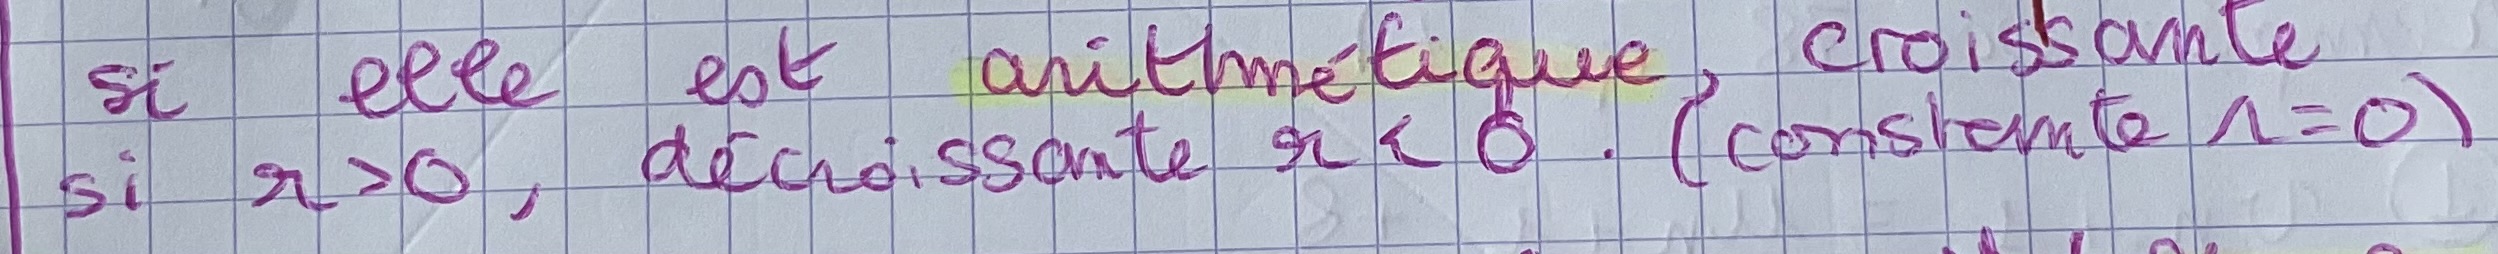 si elle est arithmétique, croissante
si r>0, décroissante r<0. (constante r=0)